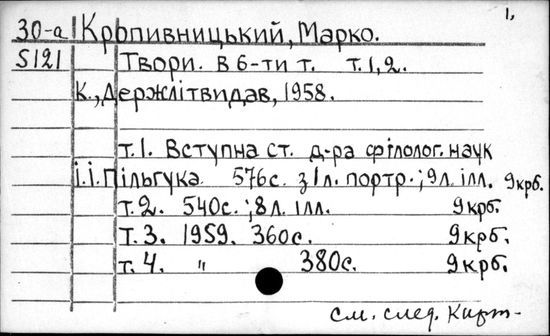 1.
30-а Кропивницький, Марко.
S121 Твори. В 6-ти т. т.1,2.
К., Держлітвидав, 1958.
т.1. Вступна ст. д-ра філолог. наук
І.І. Пільгука. 576с. з 1л. портр.; 9л. ілл. 9крб.
т.2. 540с.; 8л. ілл. 9крб.
т.3. 1959. 360с. 9крб.
т.4. " 380с. 9крб.
см. след. карт-